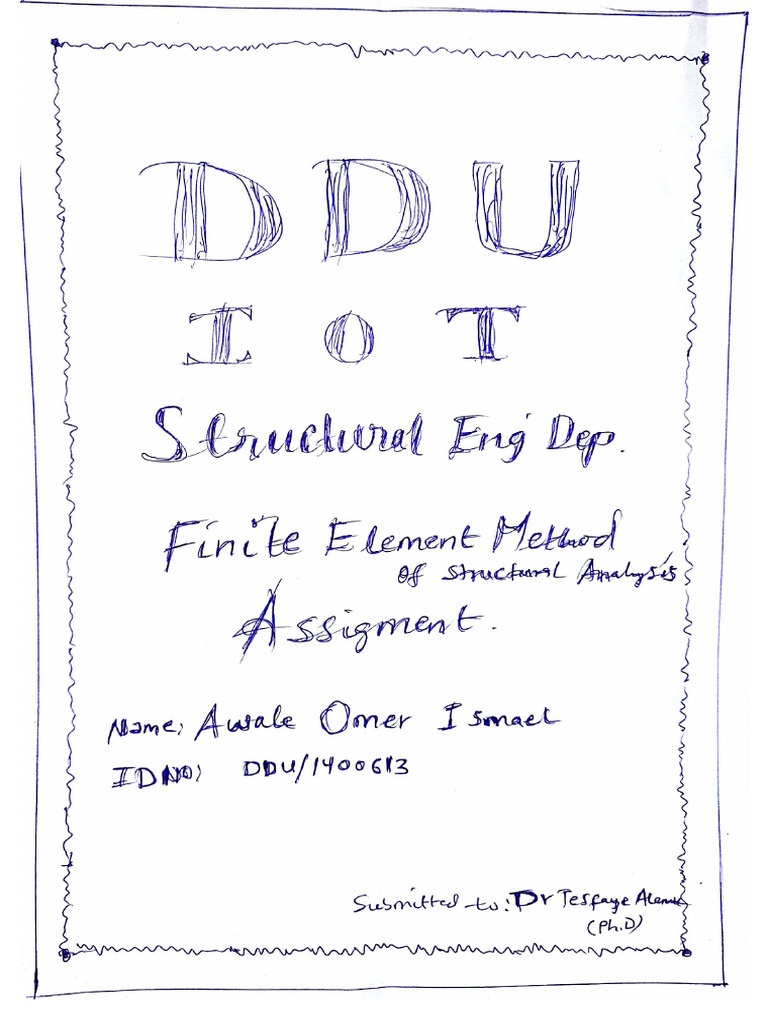 DDU
IOT
Structural Eng Dep.
Finite Element Method
Of Structural Analysis
Assigment.
Name: Awale Omer Ismael
IDNO: DDU/1400613
Submitted to: Dr Tesfaye Alemu
(Ph.D)